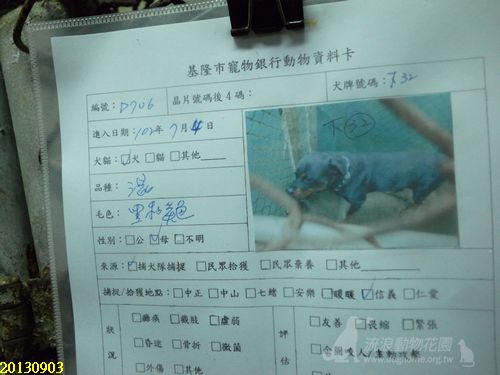 基隆市寵物銀行動物資料卡
編號：D706 晶片號碼後4碼： 犬牌號碼：下32
進入日期：102年7月4日
下32
犬貓：☑犬 □貓 □其他
品種：混
毛色：黑
性別：□公 ☑母 □不明
來源：☑捕犬隊捕捉 □民眾拾獲 □民眾棄養 □其他
捕捉/拾獲地點：□中正 □中山 □七堵 □安樂 □暖暖 ☑信義 □仁愛
狀況 □癱瘓 □截肢 □虛弱 評估 □友善 □畏縮 □緊張
□昏迷 □骨折 □黴菌 □會咬人/主動攻擊
□外傷 □其他
流浪動物花園
www.doghome.org.tw
20130903